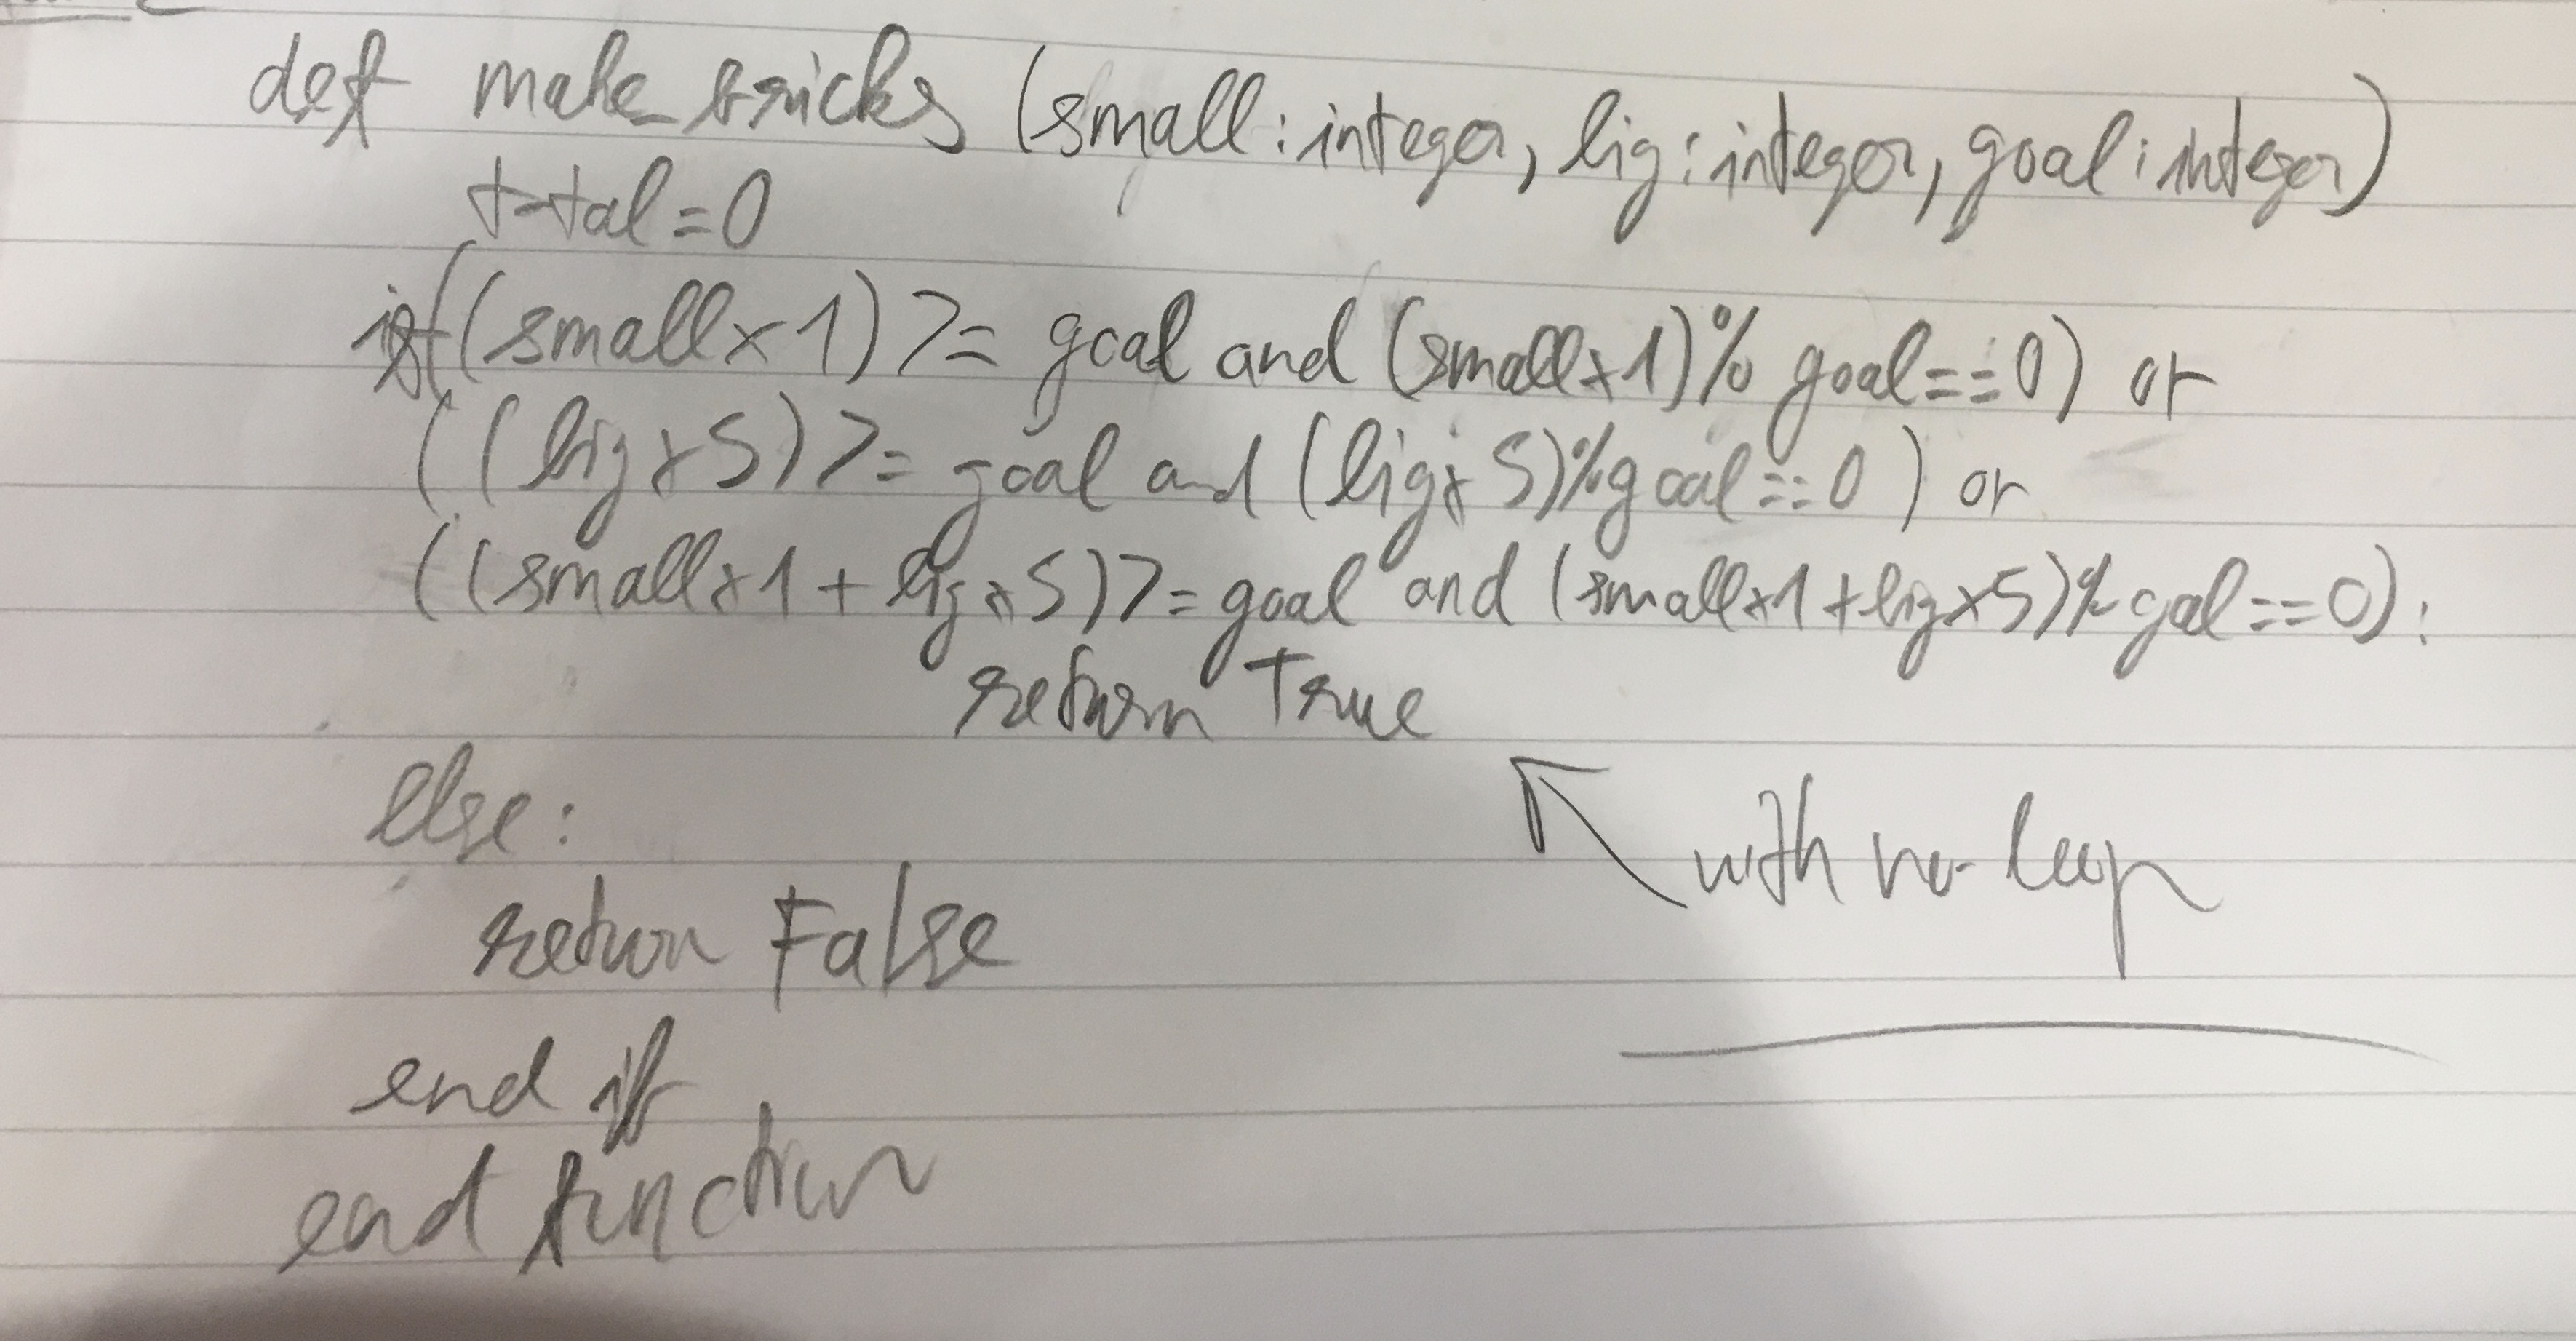 def make_bricks (small: integer, big: integer, goal: integer)
total=0
if((small×1) >= goal and (small×1)% goal==0) or
((big×5) >= goal and (big×5)%goal==0) or
((small×1 + big×5)>=goal and (small×1+big×5)% goal==0):
return True
else:
with no loop
return False
end if
end function